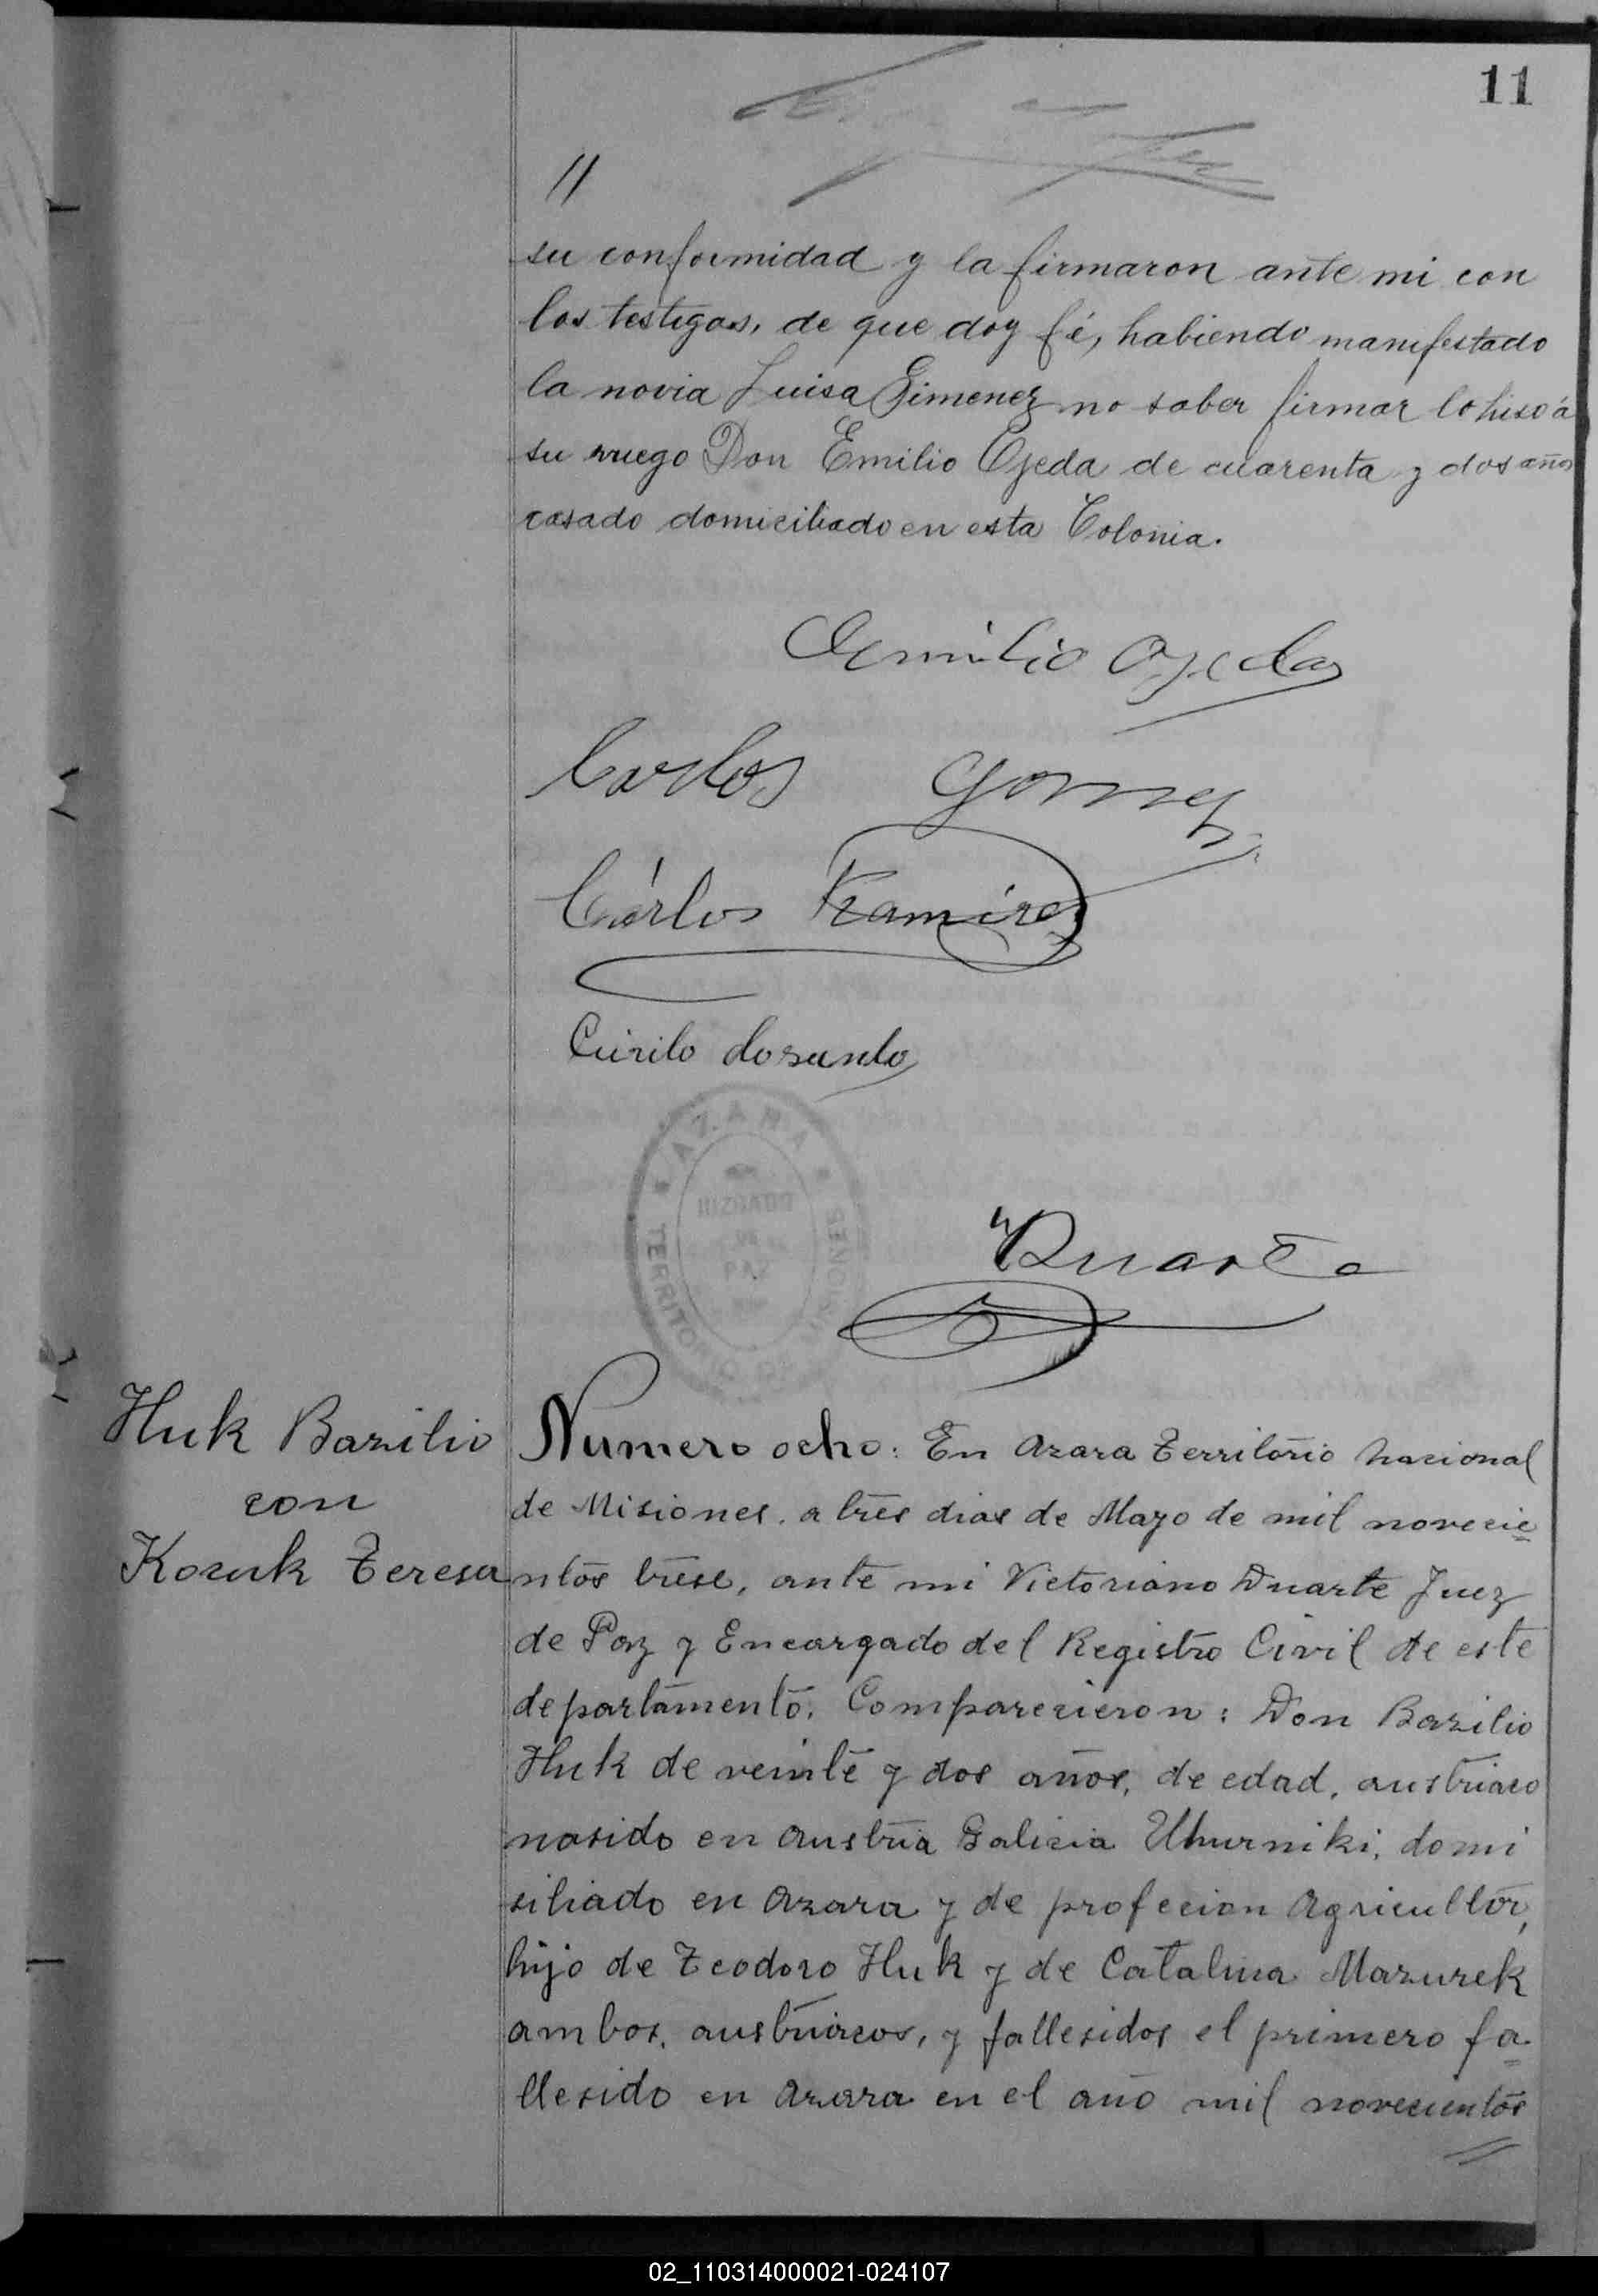 11
11
su conformidad y la firmaron ante mi con
los testigos, de que doy fé, habiendo manifestado
la novia Luisa Gimenez no saber firmar lo hiso á
su ruego Don Emilio Ojeda de cuarenta y dos años
casado domiciliado en esta Colonia.
Emilio Ojeda
Carlos Gomez
Cárlos Ramirez
Cirilo dosanto
AZARA
JUZGADO
DE
PAZ
TERRITORIO DE MISIONES
VDuarte
Huk Bazilio
con
Kozuk Teresa
Numero ocho: En Azara Territorio Nacional
de Misiones. a tres dias de Mayo de mil novecie
ntos trese, ante mi Victoriano Duarte Juez
de Paz y Encargado del Registro Civil de este
departamento. Comparecieron: Don Bazilio
Huk de veinte y dos años, de edad, austriaco
nasido en Austria Galicia, domi
siliado en Azara y de profecion Agricultor,
hijo de Teodoro Huk y de Catalina Mazurek
ambos, austriacos, y fallesidos el primero fa
llesido en Azara en el año mil novecientos
02_110314000021-024107